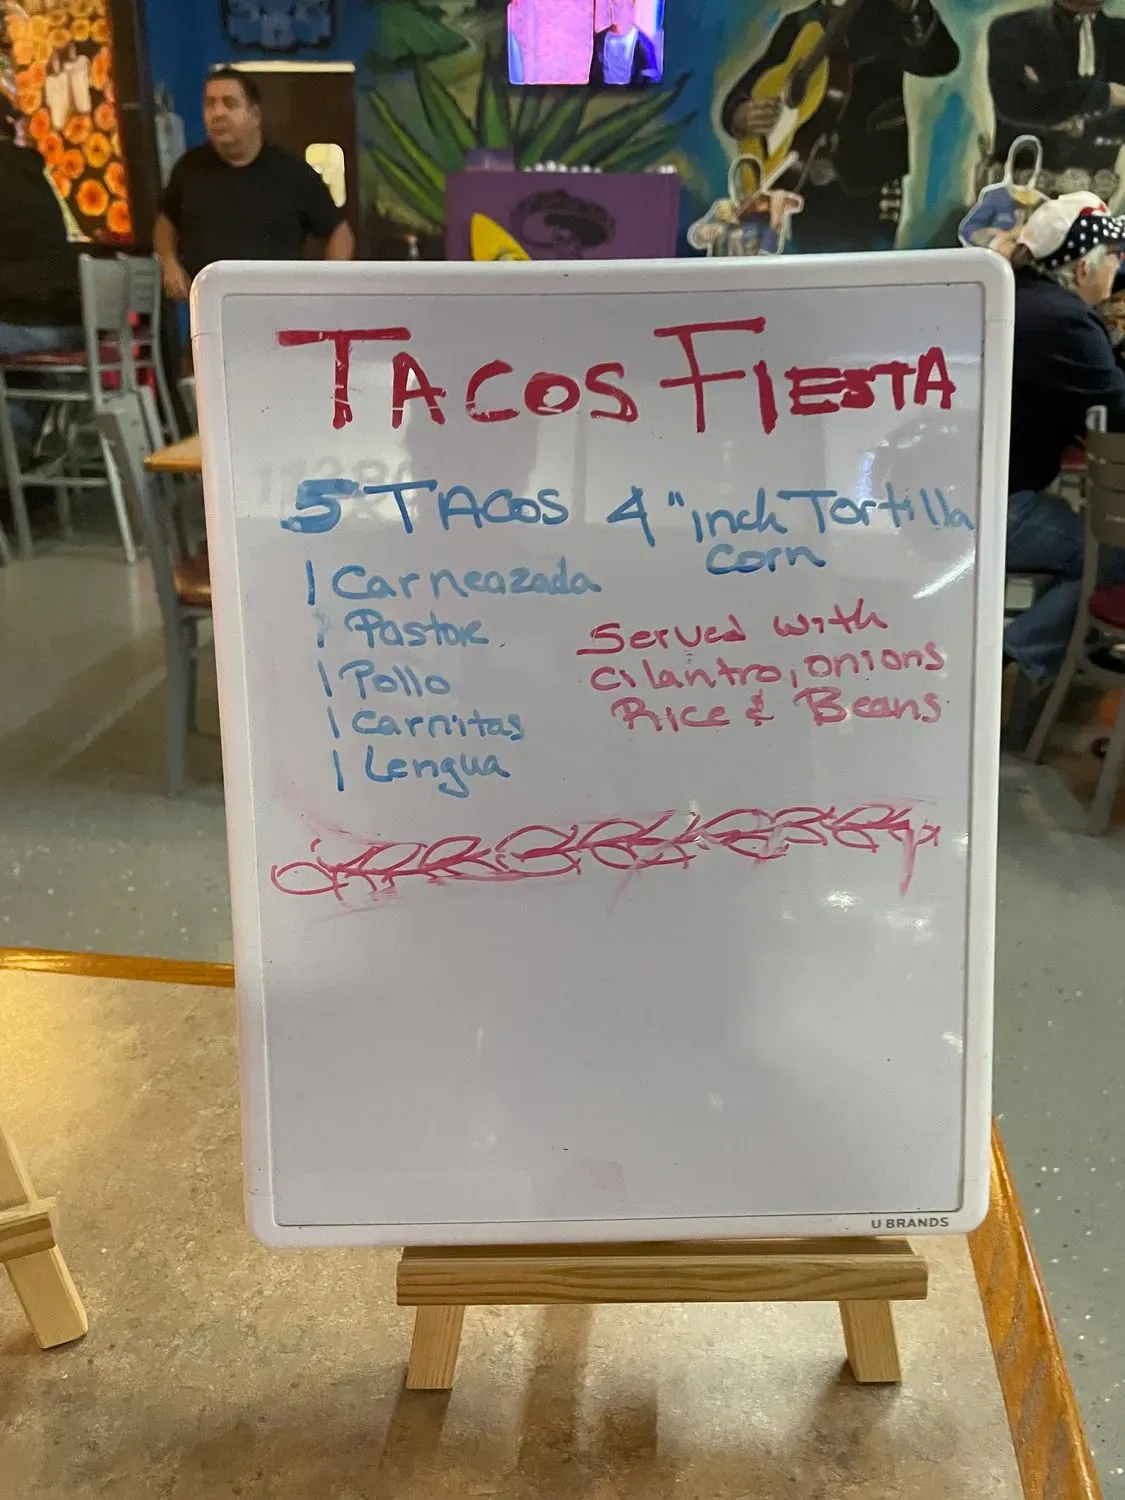 TACOS FIESTA
5 TACOS 4" inch Tortilla
corn
1 Carneazada
1 Pastor
1 Pollo
1 Carnitas
1 Lengua
Served with
cilantro, onions
Rice & Beans
U BRANDS